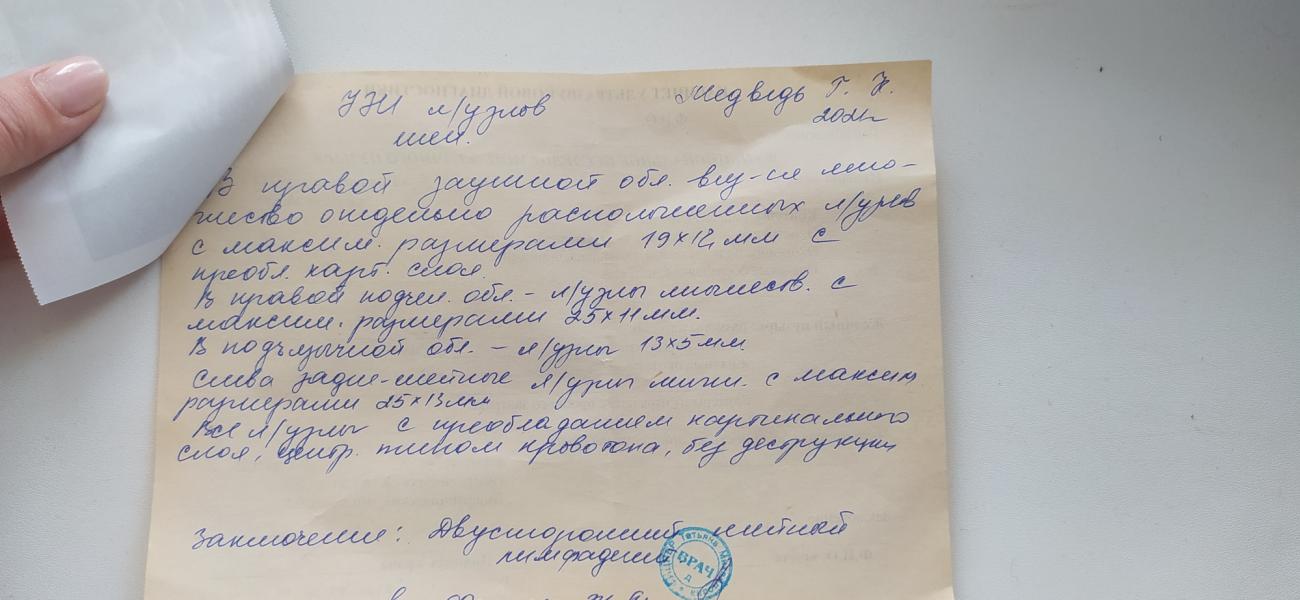 УЗИ л/узлов
шеи.
Медведь Г. Н.
2021г
В правой заушной обл. виз-ся мно-
жество отдельно расположенных л/узлов
с максим. размерами 19х12 мм с
преобл. карт. слоя.
В правой подчел. обл. - л/узлы множеств. с
максим. размерами 25х11 мм.
В подъязычной обл. - л/узлы 13х5 мм
Слева задне-шейные л/узлы множ. с максим
размерами 25х13 мм
Все л/узлы с преобладанием картикального
слоя, центр. типом кровотока, без деструкции
Заключение: Двусторонний шейный
лимфаденит
Татьяна
ВРАЧ